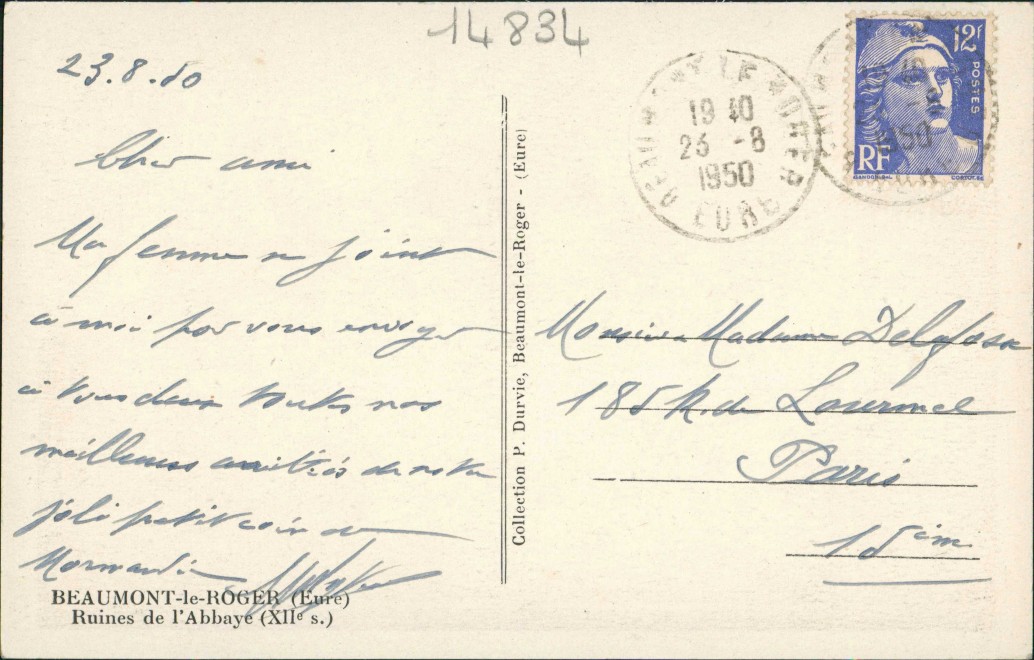 14834
23.8.50
Cher ami
Ma femme se joint
à moi pour vous envoyer
à tous deux toutes nos
meilleures amitiés de notre
joli petit coin de
Normandie
BEAUMONT-le-ROGER (Eure)
Ruines de l'Abbaye (XIIe s.)
Collection P. Durvie, Beaumont-le-Roger - (Eure)
BEAUMONT LE ROGER
19 40
23 -8
1950
EURE
12F
POSTES
RF
GANDON
Monsieur Madame Delafosse
185 R. de Lourmel
Paris
15èm